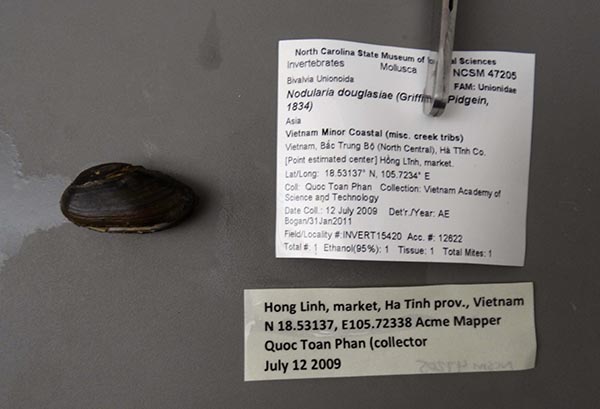 North Carolina State Museum of Sciences
Invertebrates Mollusca NCSM 47205
Bivalvia Unionoida FAM: Unionidae
Nodularia douglasiae (Griffith Pidgein,
1834)
Asia
Vietnam Minor Coastal (misc. creek tribs)
Vietnam, Bắc Trung Bô (North Central), Hà Tĩnh Co.
[Point estimated center] Hồng Lĩnh, market.
Lat/Long: 18.53137° N, 105.7234° E
Coll: Quoc Toan Phan Collection: Vietnam Academy of
Science and Technology
Date Coll.: 12 July 2009 Det'r./Year: AE
Bogan/31Jan2011
Field/Locality #:INVERT15420 Acc. #: 12622
Total #: 1 Ethanol(95%): 1 Tissue: 1 Total Mites: 1
Hong Linh, market, Ha Tinh prov., Vietnam
N 18.53137, E105.72338 Acme Mapper
Quoc Toan Phan (collector
July 12 2009
NCSM 47205